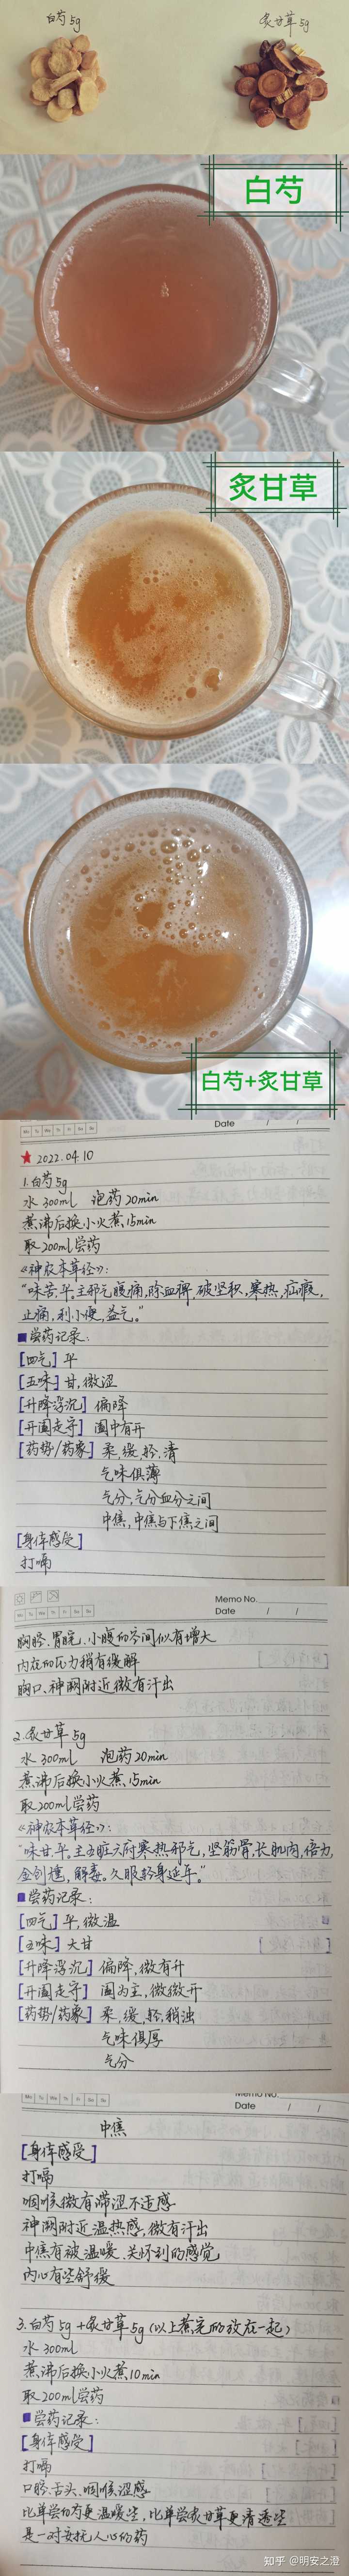 白芍5g
炙甘草5g
白芍
炙甘草
白芍+炙甘草
Date / /
Mo Tu We Th Fr Sa Su
★ 2022.04.10
1.白芍5g
水 300ml 泡药20min
煮沸后换小火煮15min
取200ml尝药
《神农本草经》:
“味苦平。主邪气腹痛,除血痹,破坚积,寒热,疝瘕,
止痛,利小便,益气。”
■尝药记录:
[四气] 平
[五味] 甘,微涩
[升降浮沉] 偏降
[开阖走守] 阖中有开
[药势/药象] 柔,缓,轻,清
气味俱薄
气分,气分血分之间
中焦,中焦与下焦之间
[身体感受]
打嗝
Memo No.
Mo Tu We Th Fr Sa Su
Date / /
胸膛、胃脘、小腹的空间似有增大
内在的压力稍有缓解
胸口、神阙附近微有汗出
2.炙甘草5g
水 300ml 泡药20min
煮沸后换小火煮15min
取200ml尝药
《神农本草经》:
“味甘,平。主五脏六府寒热邪气,坚筋骨,长肌肉,倍力,
金创尰,解毒。久服轻身延年。”
■尝药记录:
[四气] 平,微温
[五味] 大甘
[升降浮沉] 偏降,微有升
[开阖走守] 阖为主,微微开
[药势/药象] 柔,缓,轻,稍浊
气味俱厚
气分
Memo No.
Mo Tu We Th Fr Sa Su
Date / /
中焦
[身体感受]
打嗝
咽喉微有滞涩不适感
神阙附近温热感,微有汗出
中焦有被温暖、关怀到的感觉
内心有些舒缓
3.白芍5g+炙甘草5g(以上煮完的放在一起)
水 300ml
煮沸后换小火煮10min
取200ml尝药
■尝药记录:
[身体感受]
打嗝
口腔、舌头、咽喉涩感
比单尝白芍更温暖些,比单尝炙甘草更清透些
是一对安抚人心的药
知乎 @明安之澄